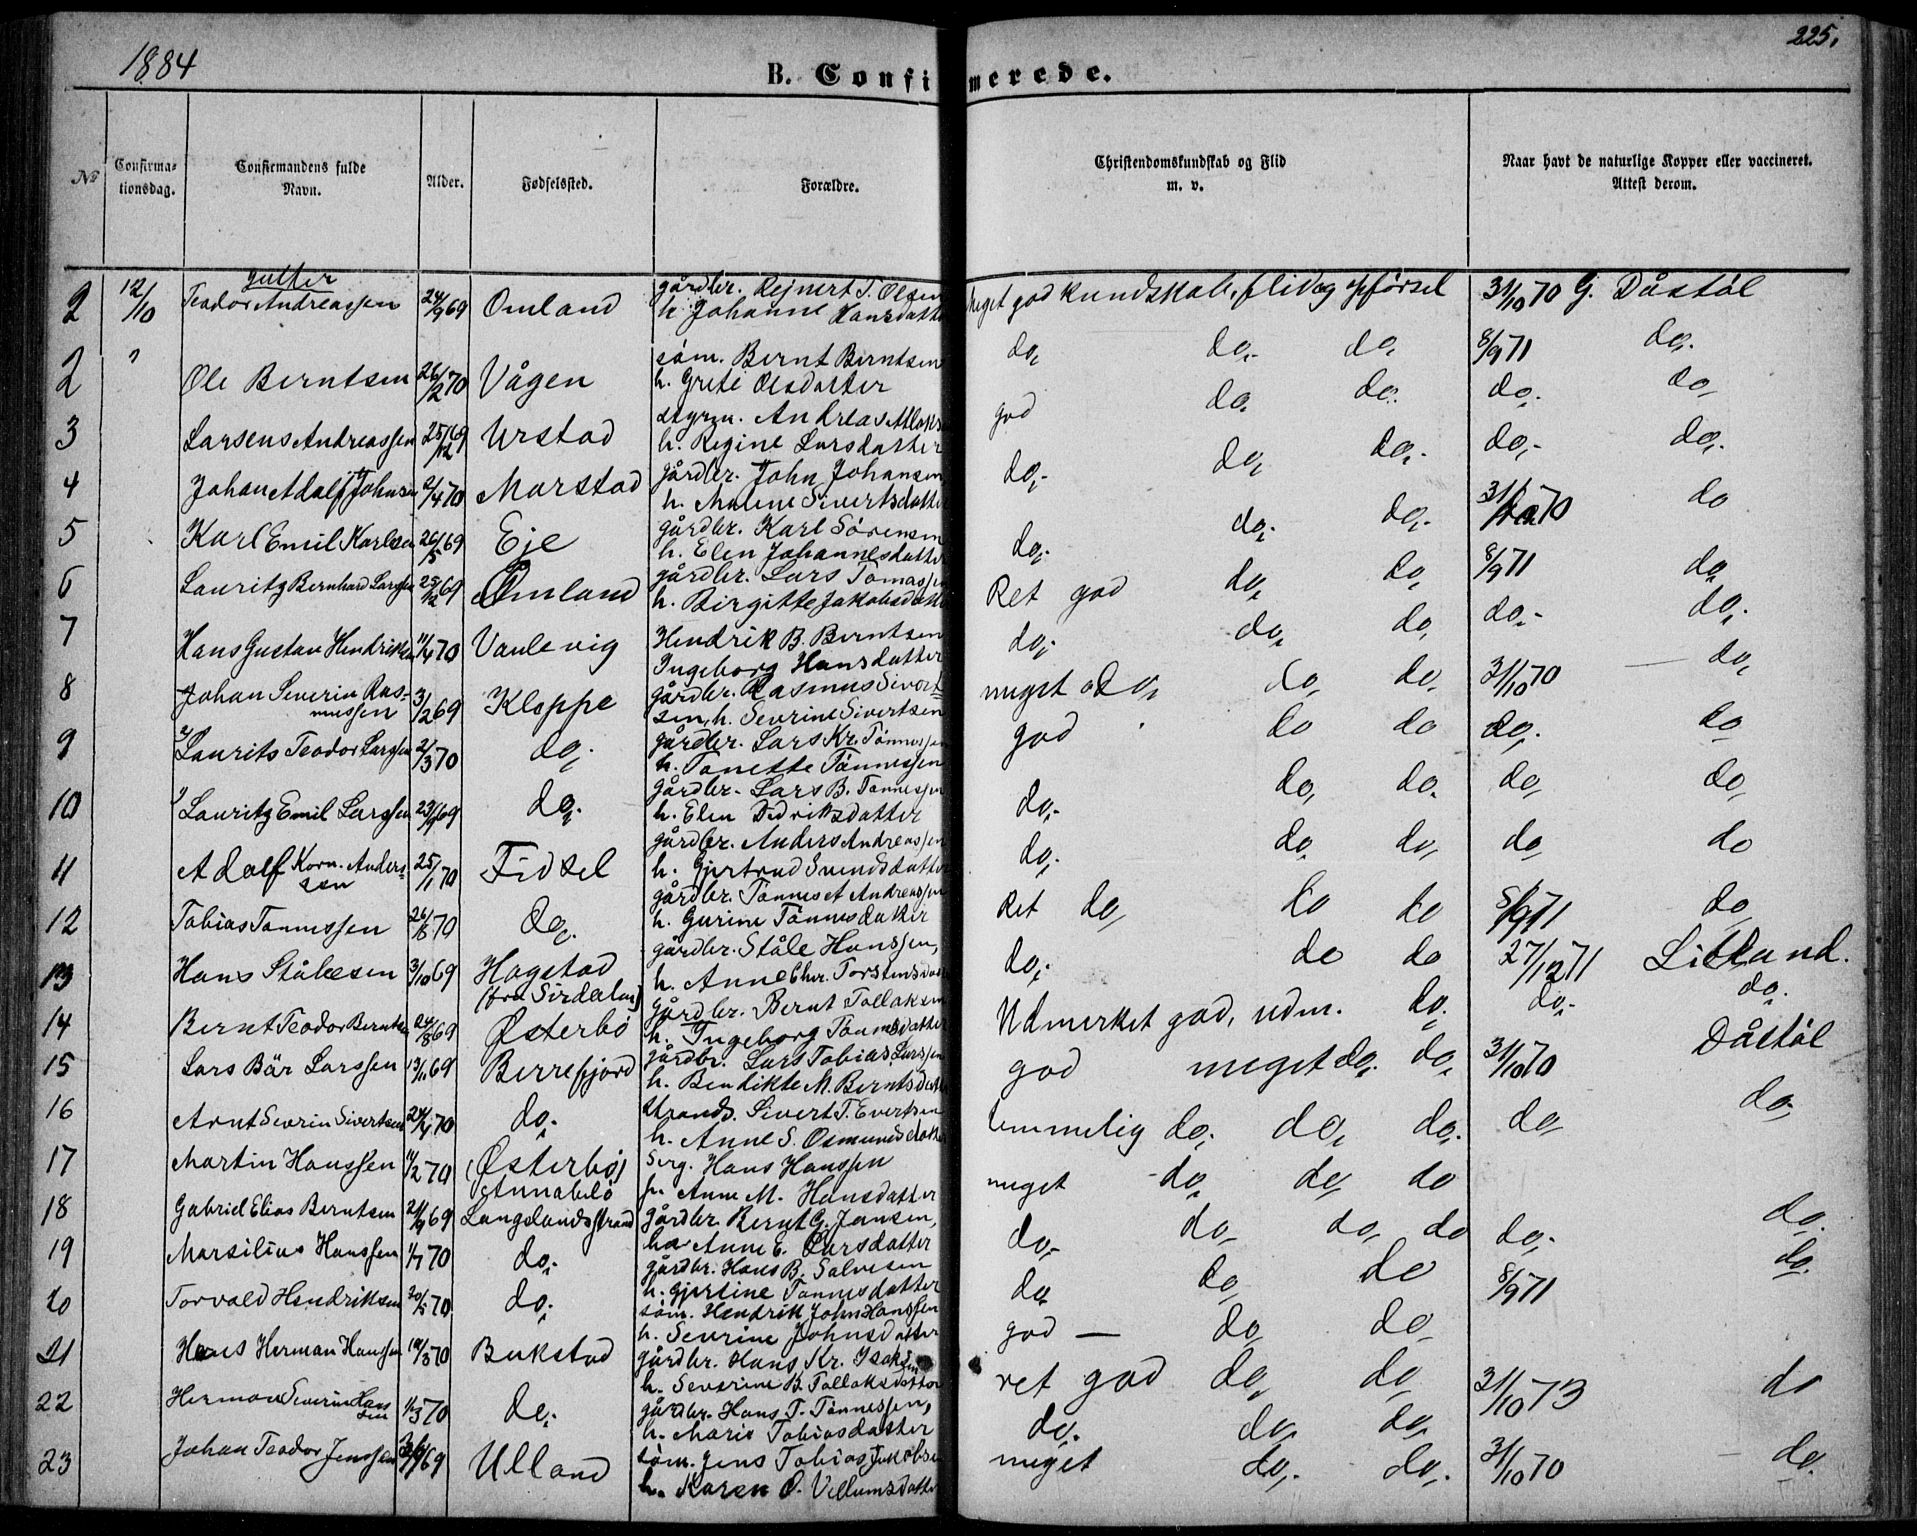 1884
225.
B. Confirmerede.
№
Confirmationsdag.
Confirmandens fulde Navn.
Alder.
Fødselssted.
Forældre.
Christendomskundskab og Flid m. v.
Naar havt de naturlige Kopper eller vaccineret. Attest derom.
gutter
2 12/10 Teodor Andreassen 24/9 69 Omland gårdbr. Rejnert T. Olsen h. Johanne Hansdatter meget god kundskab, flid og opførsel 31/10 70 G. Dåstøl
2 " Ole Berntsen 26/2 70 Vågen søm. Bernt Berntsen h. Grete Olsdatter do, do. do, 8/9 71 do.
3 Larsens Andreassen 25/12 69 Urstad styrm. Andreas Atlaks h. Regine Larsdatter god do. do. do. do,
4 Johan Adolf Johnsen 2/4 70 Marstad gårdbr. John Johansen h. Malene Sivertsdatter do. do, do. do, do,
5 Karl Emil Karlsen 26/5 69 Eje gårdbr. Karl Sørensen h. Elen Johannesdatter do. do. do. 31/10 70 do
6 Lauritz Bernhard Larssen 25/12 69 Omland gårdbr. Lars Tomassen h. Birgitte Jakobsdatter Ret god do, do, 8/9 71 do,
7 Hans Gustav Hendriksen 11/4 70 Vaulevig Hendrik B. Berntsen Ingeborg Hansdatter do, do, do, do. do,
8 Johan Severin Rasmussen 3/12 69 Kleppe gårdbr. Rasmus Sivertsen, h. Sevrine Sivertsen meget do, do, do. 31/10 70 do,
9 Laurits Teodor Larssen 2/3 70 do, gårdbr. Lars Kr. Tønnessen h. Tonette Tønnessen god do do do. do
10 Lauritz Emil Larssen 23/9 69 do. gårdbr. Lars B. Tønnessen h. Elen Didriksdatter do. do, do. do, do,
11 Adolf Korn. Anderssen 25/1 70 Fidsel gårdbr. Anders Andreassen h. Gjertrud Svendsdatter do. do, do, do, do
12 Tobias Tønnessen 26/8 70 do. gårdbr. Tønnes et Andreassen h. Gurine Tønnesdatter Ret do, do do 8/9 71 do,
13 Hans Ståhlesen 3/10 69 Hogstad (fra Sirdalen) gårdbr. Ståle Hanssen, h. Anne Chr. Torstensdatter do. do do 27/12 71 Litland.
14 Bernt Teodor Berntsen 24/8 69 Østerbø gårdbr. Bernt Tollaksen h. Ingeborg Tønnesdatter Udmerket god, udm. do. do. do.
15 Lars Bär Larssen 13/11 69 Berrefjord gårdbr. Lars Tobias Larssen h. Bendikte M. Berntsdatter god meget do. do, 31/10 70 Dåstøl
16 Arnt Sevrin Sivertsen 24/4 70 do. Strands. Sivert T. Evertsen h. Anne S. Osmundsdatter temmelig do, do, do. do, do,
17 Martin Hanssen 11/2 70 (Østerbø) Annabelø Serg. Hans Hanssen h. Anne M. Hansdatter meget do, do, do
18 Gabriel Elias Berntsen 21/9 69 Langelandsstrand gårdbr. Bernt G. Jansen, h. Anne E. Larsdatter do. do, do, do do, do.
19 Marsilius Hanssen 1/7 70 do. gårdbr. Hans B. Salvesen h. Gjertine Tønnesdatter do, do, do 8/9 71 do.
20 Torvald Hendriksen 20/5 70 do. søm. Hendrik John Hanssen h. Sevrine Johnsdatter god — do, do,
21 Hans Herman Hanssen 19/3 70 Bukstad gårdbr. Hans Kr. Isaksen h. Severine B. Tollaksdatter ret god do, do,
22 Herman Severin Hanssen 1/3 70 do. gårdbr. Hans T. Tønnessen, h. Marie Tobiasdatter do. do, do, 31/10 73 do
23 Johan Teodor Jenssen 69 Ulland søm. Jens Tobias Jakobsen h. Karen O. Villumsdatter meget do, do. 31/10 70 do.